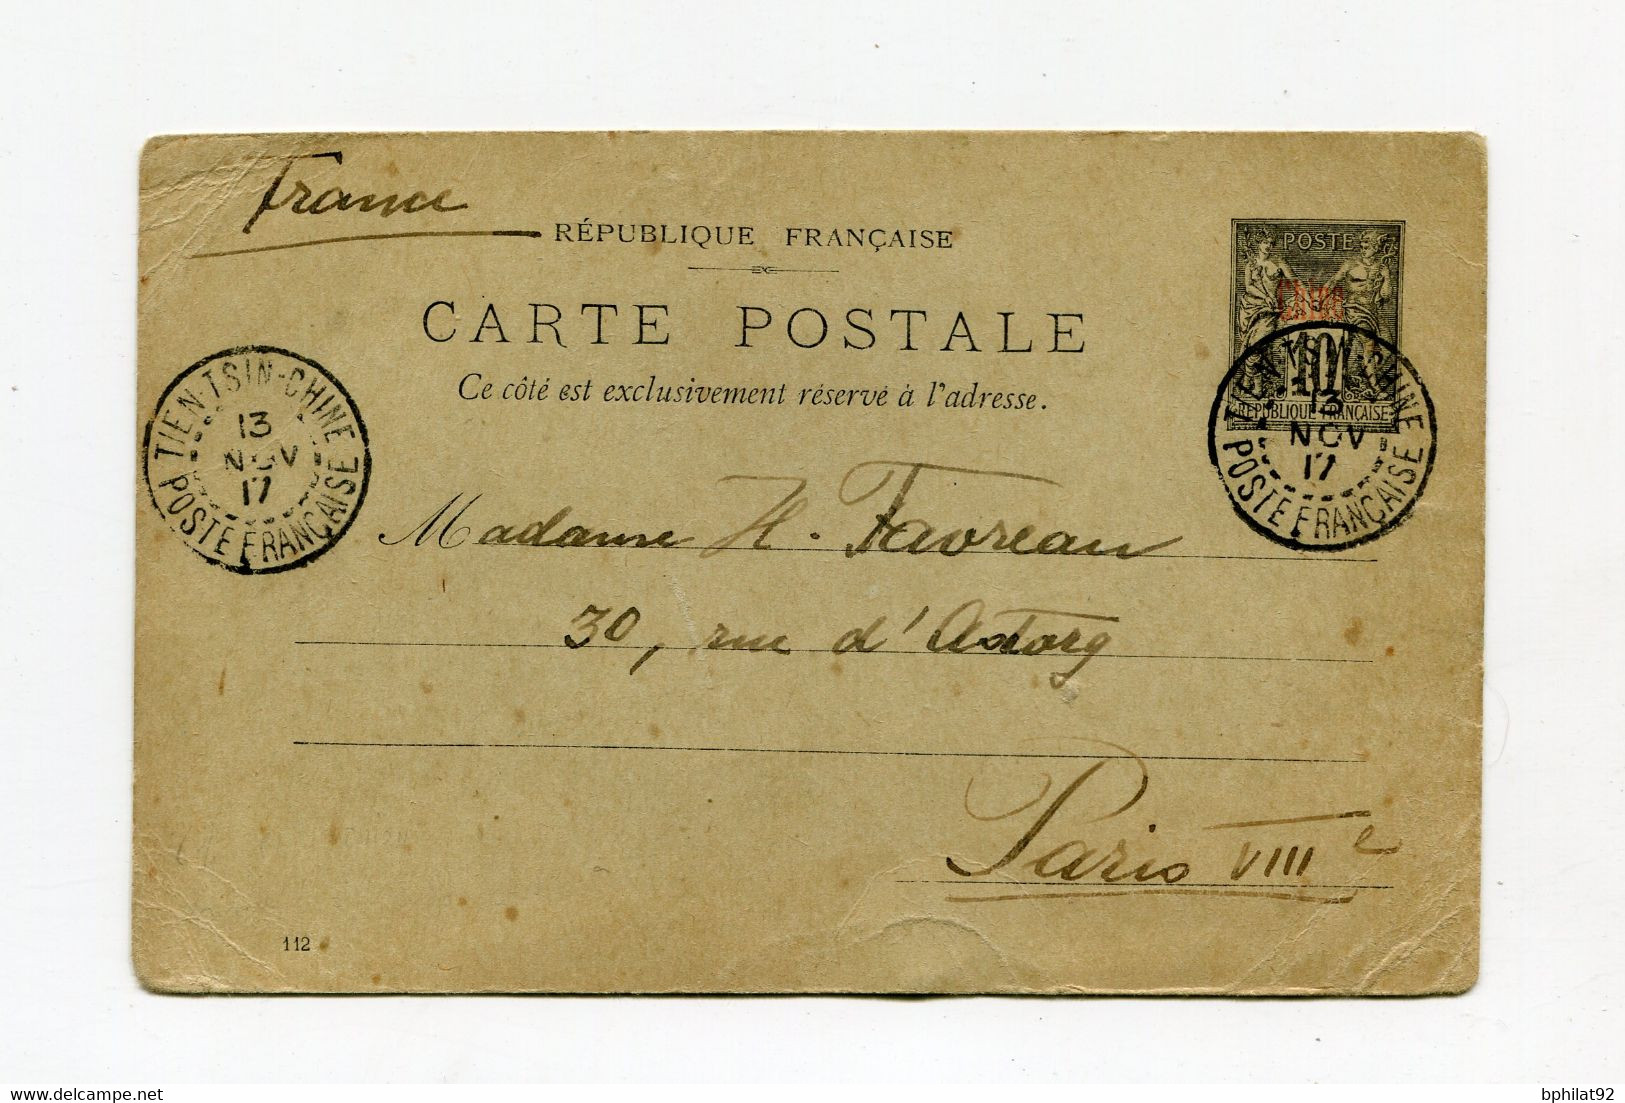 France
RÉPUBLIQUE FRANÇAISE
CARTE POSTALE
Ce côté est exclusivement réservé à l'adresse.
POSTE
Chine
10
REPUBLIQUE FRANÇAISE
TIEN-TSIN-CHINE
13
NOV
17
POSTE FRANÇAISE
TIEN-TSIN-CHINE
13
NOV
17
POSTE FRANÇAISE
Madame H. Favreau
30, rue d'Astorg
Paris VIIIe
112
delcampe.net
bphilat92